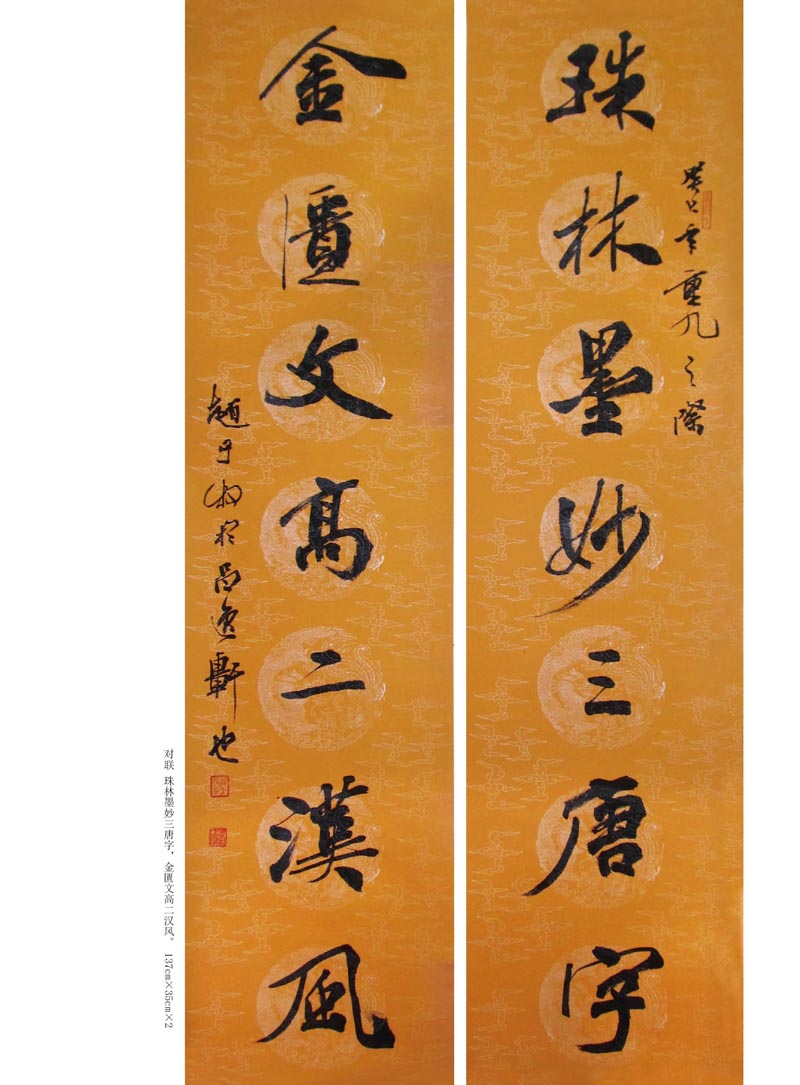 癸巳年重九之際
珠林墨妙三唐字
金匱文高二漢風
趙于於逸軒也
对联 珠林墨妙三唐字，金匮文高二汉风。 137cm×35cm×2